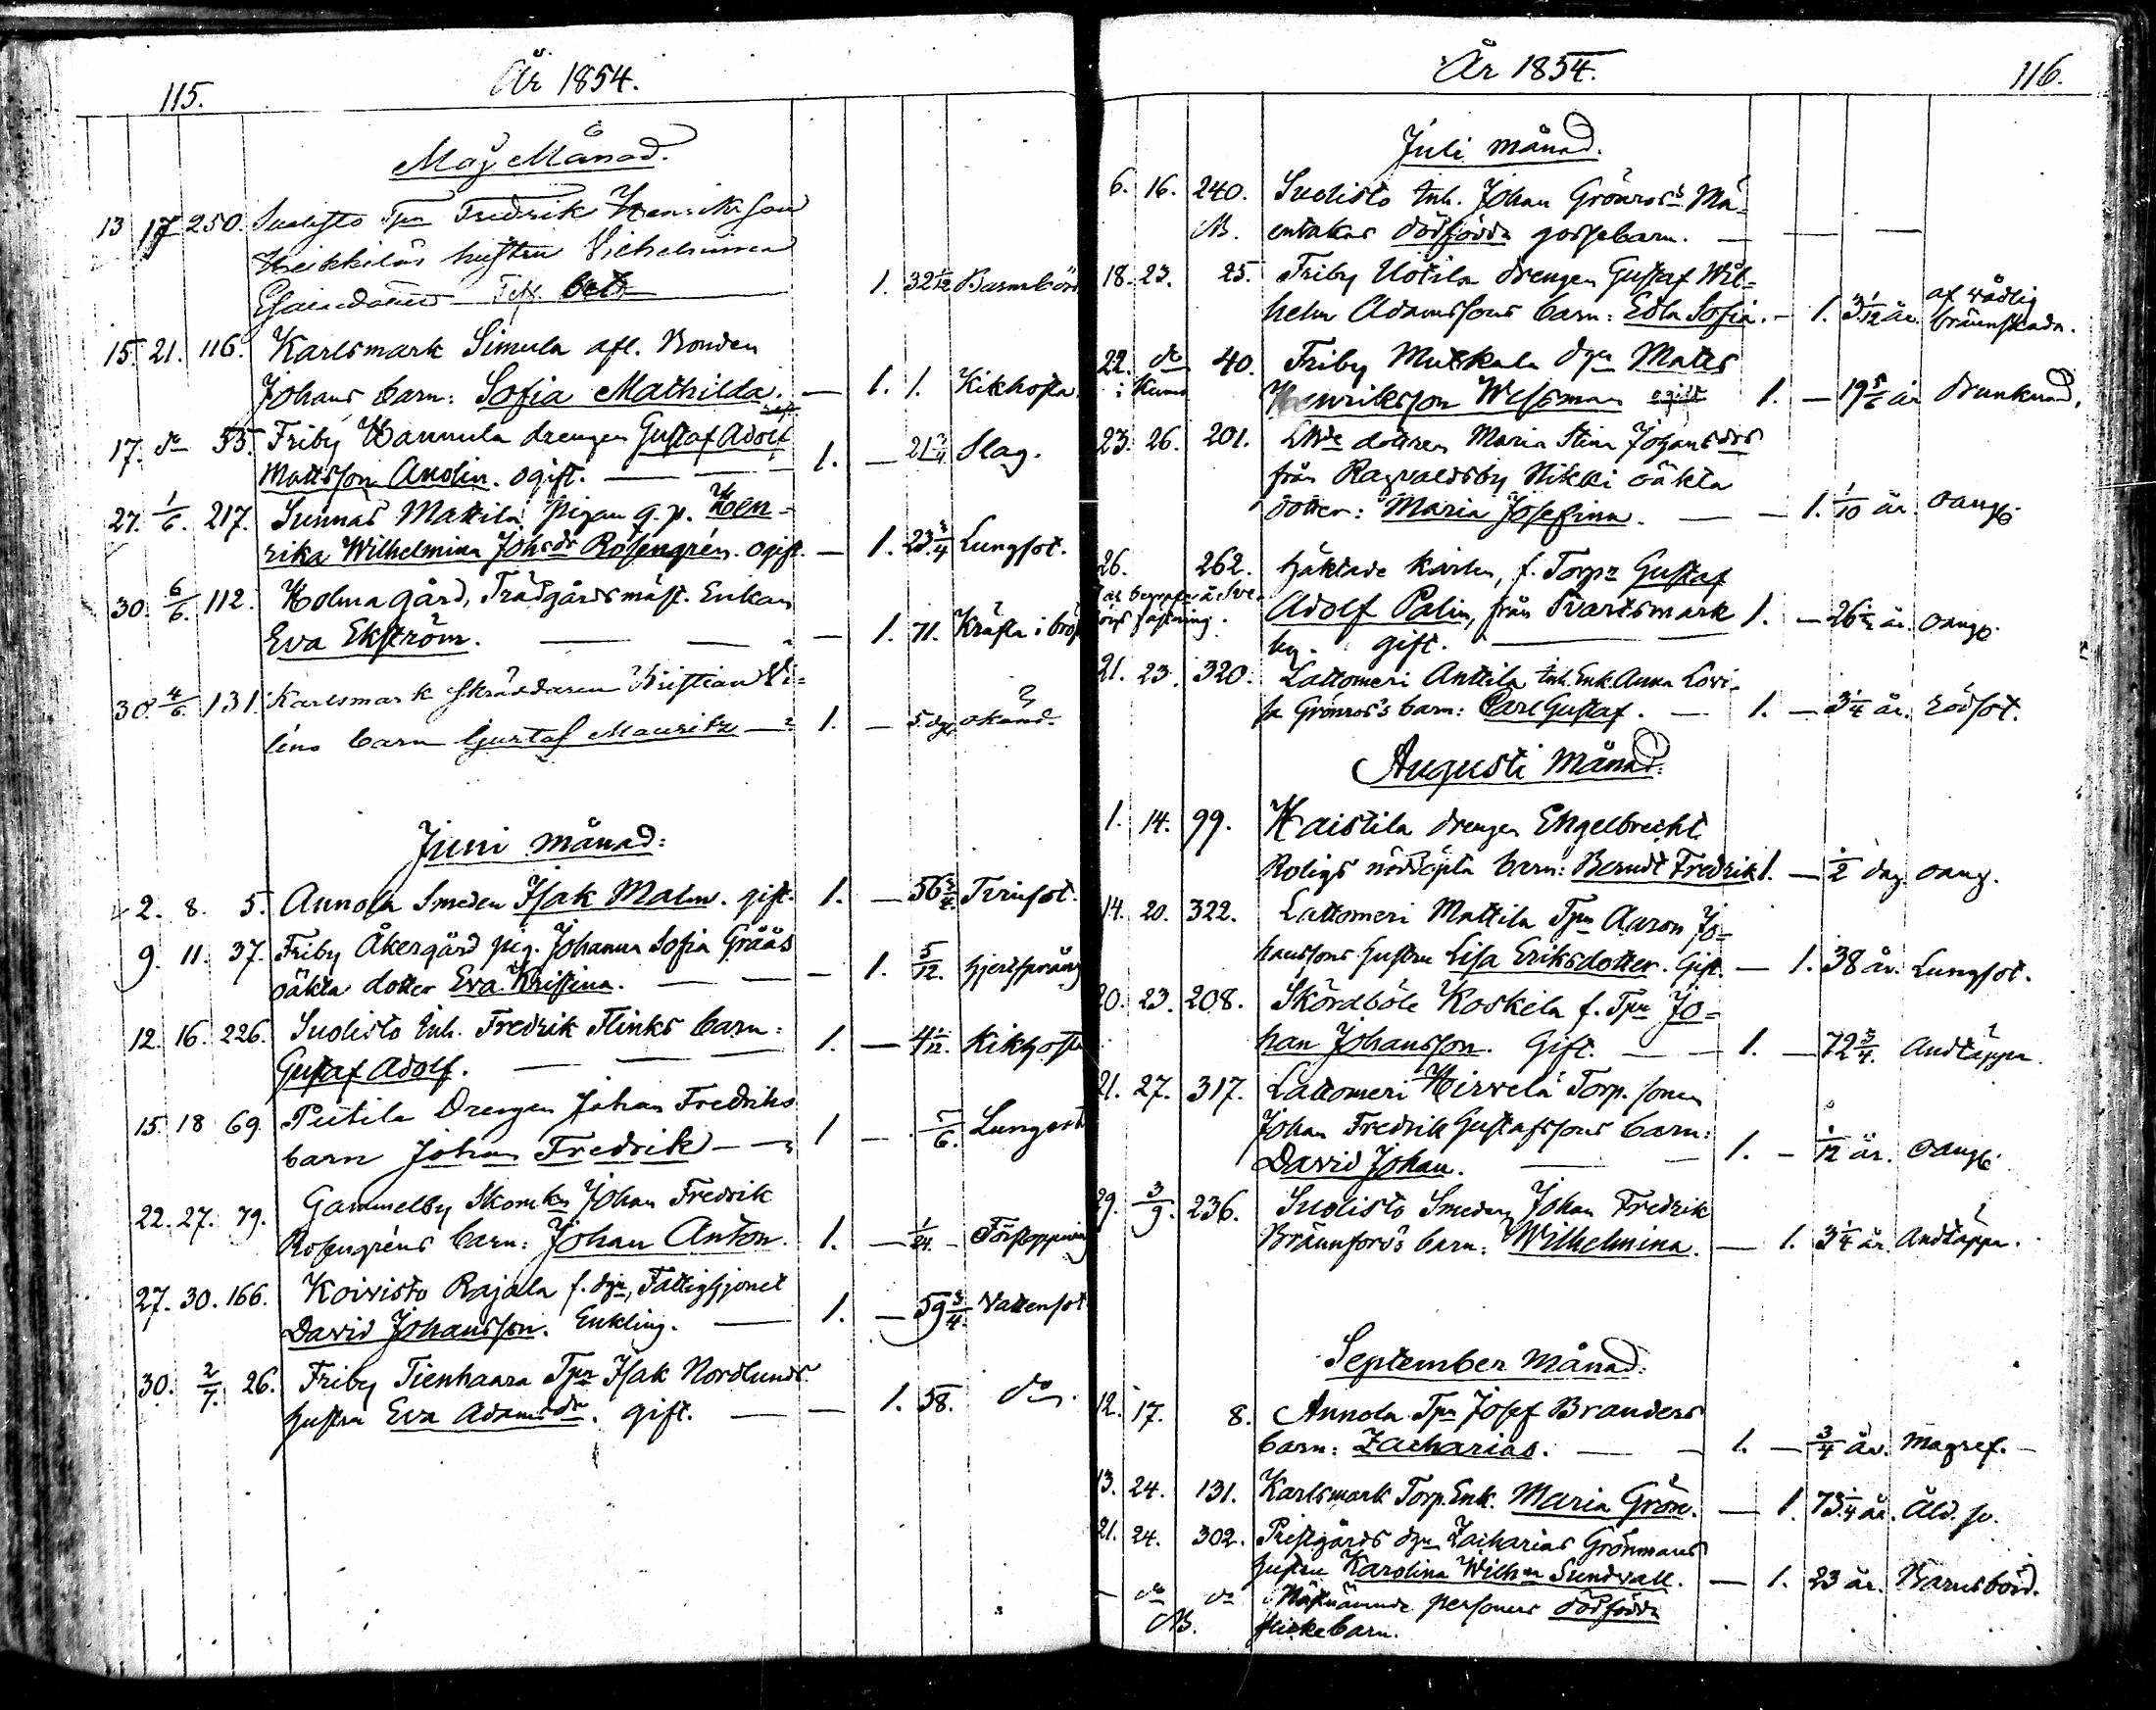 115.
År 1854.
Maj Månad.
13 17 250. Suolisto Tpr Fredrik Henrikson
Heikkiläs hustru Vilhelmina
Esaiedotter 1. 32 1/12 Barnbörd
15. 21. 116. Karlsmark Simula afl. Bonden
Johans barn: Sofia Mathilda. — 1. 1. Kikhosta.
17. do 55. Friby Hannula drengen Gustaf Adolf
Mattsson Andin. ogift. — 1. — 21 3/4 Slag.
27. 1/6. 217. Sunnas Mattila Pigan q. p. Hen-
rika Wilhelmina Johsdr Rosengrén. ogift. — 1. 23 3/4 Lungsot.
30. 6/6. 112. Holma gård, Trädgårdsmäst. Enkan
Eva Ekström. — 1. 71. Kräfta i brös
30. 4/6. 131. Karlsmark Skräddaren Kristian Wi-
léns barn Gustaf Mauritz — 1. — 5. dgr okänd.
Juni månad:
2. 8. 5. Annola Smeden Isak Malm. gift. 1. — 56 3/4 Tvinsot.
9. 11. 37. Friby Åkergård pig. Johanna Sofia Gråås
oäkta dotter Eva Kristina. — 1. 5/12. hjertsprång
12. 16. 226. Suolisto Inh. Fredrik Flinks barn:
Gustaf Adolf. — 1. — 4 1/12. Kikhosta
15. 18 69. Peitila Drengen Johan Fredriks
barn Johan Fredrik — 1 — 5/6. Lungsot
22. 27. 79. Gammelby Skom. Johan Fredrik
Rosengréns barn: Johan Anton. 1. — 1/24. — Förstoppning
27. 30. 166. Koivisto Rajala f. dgn, Fattighjonet
David Johansson. Enkling. — 1. — 59 3/4. Vattensot
30. 2/7. 26. Friby Tienhaara Tpr Isak Nordlunds
hustru Eva Adamsdr. gift. — 1. 58. do.
År 1854.
116.
Juli månad.
6. 16. 240. Suolisto Inh. Johan Grönros's Ma-
NB. entakas dödfödda gossebarn. —
18. 23. 25. Friby Uotila drengen Gustaf Wil-
helm Adamssons barn: Edla Sofia. — 1. 3 1/12 år. af vådlig brännskada.
22. do 40. Friby Mutkala dgn Matts
i Kumo Henriksson Wessman ogift 1. — 19 5/6 år Drunknad.
23. 26. 201. dottren Maria Stina Johansdrs
från Ragvaldsby Nikki oäkta
dotter: Maria Josefina. — 1. 1/10 år. oangf.
26. 262. häktade karlen, f. Torpr Gustaf
Adolf Palin, från Svartsmark 1. — 26 1/2 år. oangf.
by. gift. —
21. 23. 320. Lattomeri Anttila Inh. Enk. Anna Lovi-
sa Grönros's barn: Carl Gustaf. — 1. — 3 1/4 år. rödsot.
Augusti Månad:
1. 14. 99. Haistila drengen Engelbrecht
Roligs nöddöpta barn: Berndt Fredrik 1. — 1/2 dag. oang.
14. 20. 322. Lattomeri Mattila Tpn Aaron Jo-
hanssons hustru Lisa Eriksdotter. Gift. — 1. 38 år. Lungsot.
20. 23. 208. Skördböle Koskela f. Tpn Jo-
han Johansson. Gift. — 1. — 72 3/4. Andtäppa.
21. 27. 317. Lattomeri Hirvelä Torp. sonen
Johan Fredrik Gustafssons barn:
David Johan. — 1. — 1/12 år. oangf.
29. 3/9. 236. Suolisto Smeden Johan Fredrik
Brännfors's barn: Wilhelmina. — 1. 3 1/4 år. Andtäppa.
September Månad:
12. 17. 8. Annola Tpn Josef Branders
barn: Zacharias. — 1. — 3/4 år. Magref. —
13. 24. 131. Karlsmark Torp. Enk. Maria Grön. — 1. 73 1/4 år. Åld. sv.
21. 24. 302. Prestgårds dgn Zacharias Grönmans
hustru Karolina Wilhna Sundvall. — 1. 23 år. Barnsbörd.
— do do Näst nämnde personers dödfödda
NB. flickebarn.